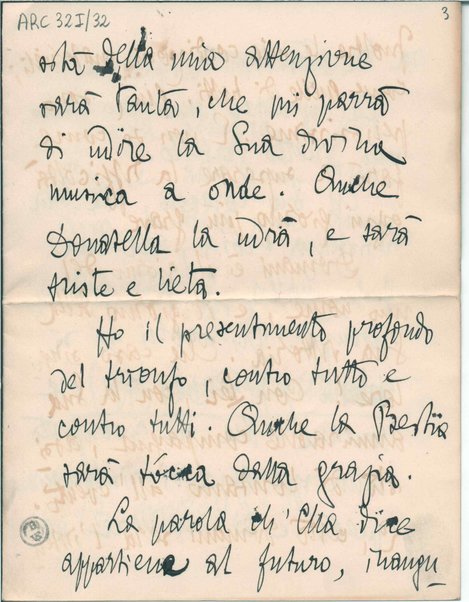 ARC 32I/32
3
sità della mia attenzione
sarà tanta, che mi parrà
di udire la Sua divina
musica a onde. Anche
Donatella la udrà, e sarà
triste e lieta.
Ho il presentimento profondo
del trionfo, contro tutto e
contro tutti. Anche la Bestia
sarà tócca dalla grazia.
La parola ch'Ella dice
appartiene al futuro, inaugu